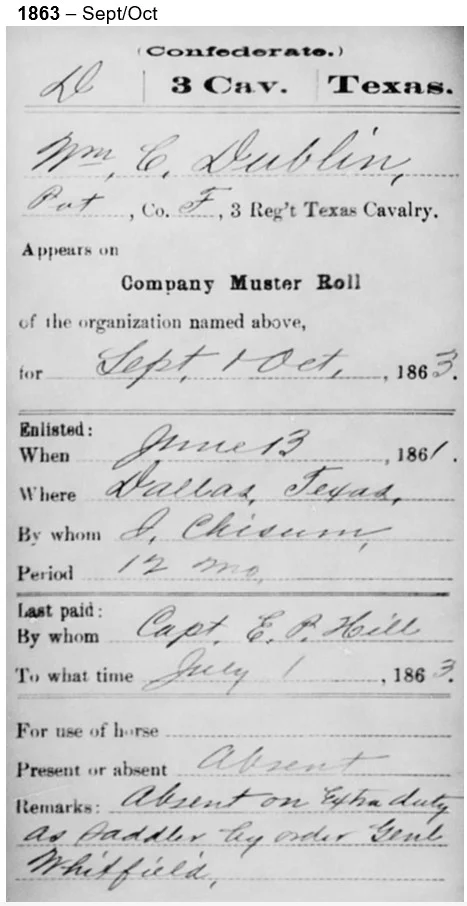 1863 – Sept/Oct
(Confederate.)
D | 3 Cav. | Texas.
Wm. C. Dublin,
Pvt, Co. F, 3 Reg't Texas Cavalry.
Appears on
Company Muster Roll
of the organization named above,
for Sept. & Oct., 1863.
Enlisted:
When June 13, 1861.
Where Dallas, Texas,
By whom I. Chisum,
Period 12 mo.
Last paid:
By whom Capt. E. P. Hill
To what time July 1, 1863.
For use of horse
Present or absent Absent
Remarks: Absent on Extra duty
as Saddler by order Genl
Whitfield,